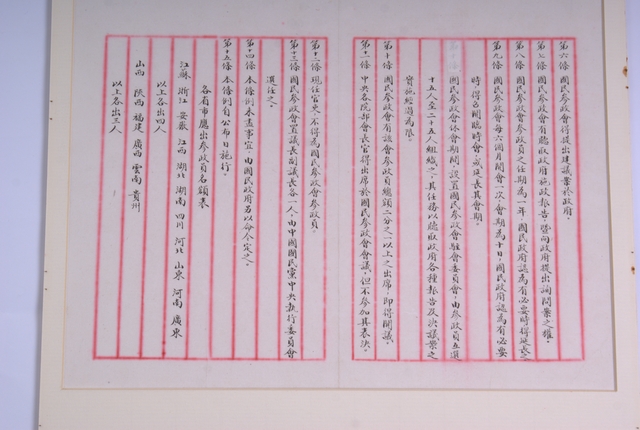 第六條 國民參政會得提出建議案於政府。
第七條 國民參政會有聽取政府施政報告，暨向政府提出詢問案之權。
第八條 國民參政會參政員之任期為一年，國民政府認為有必要時得延長之
第九條 國民參政會每六個月開會一次，會期為十日，國民政府認為有必要
時得召開臨時會，或延長其會期。
國民參政會休會期間，設置國民參政會駐會委員會，由參政員互選
十五人至二十五人組織之，其任務以聽取政府各種報告及決議案之
實施經過為限。
第十條 國民參政會有該會參政員總額二分之一以上之出席，即得開議。
第十一條 中央各院部會長官得出席於國民參政會會議，但不參加其表決。
第十二條 現任官吏，不得為國民參政會參政員。
第十三條 國民參政會置議長副議長各一人，由中國國民黨中央執行委員會
選任之。
第十四條 本條例未盡事宜，由國民政府另以命令定之。
第十五條 本條例自公布日施行。
各省市應出參政員名額表
江蘇 浙江 安徽 江西 湖北 湖南 四川 河北 山東 河南 廣東
以上各出四人
山西 陝西 福建 廣西 雲南 貴州
以上各出三人